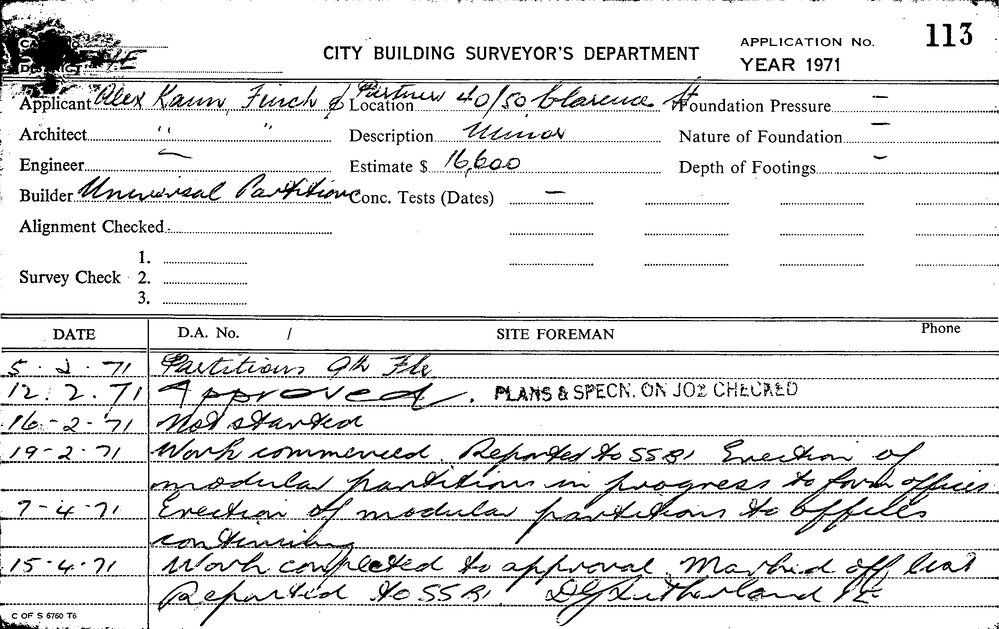 CITY BUILDING SURVEYOR'S DEPARTMENT
APPLICATION No. 113
YEAR 1971
DISTRICT
Applicant Alex Kann, Finch & Partners Location 40/50 Clarence St Foundation Pressure —
Architect " " Description Minor Nature of Foundation —
Engineer — Estimate $ 16,600 Depth of Footings —
Builder Universal Partitions Conc. Tests (Dates) —
Alignment Checked
1.
Survey Check 2.
3.
DATE D.A. No. / SITE FOREMAN Phone
5.2.71 Partitions 9th Flr
12.2.71 Approved. PLANS & SPECN. ON JOB CHECKED
16-2-71 Not started
19-2-71 Work commenced. Reported to SSBI Erection of
modular partitions in progress to form offices.
7-4-71 Erection of modular partitions to offices
continuing
15-4-71 Work completed to approval. Marked off list
Reported to SSBI
C OF S 5750 T6